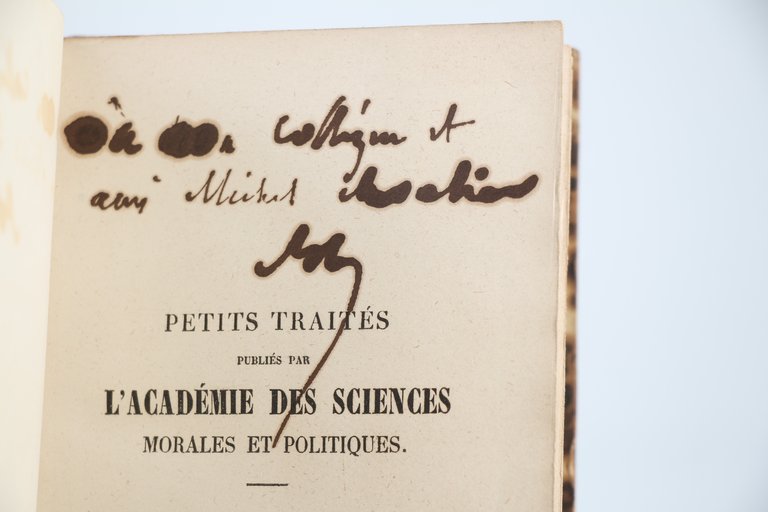 à collègue et
ami Michel
PETITS TRAITÉS
PUBLIÉS PAR
L'ACADÉMIE DES SCIENCES
MORALES ET POLITIQUES.